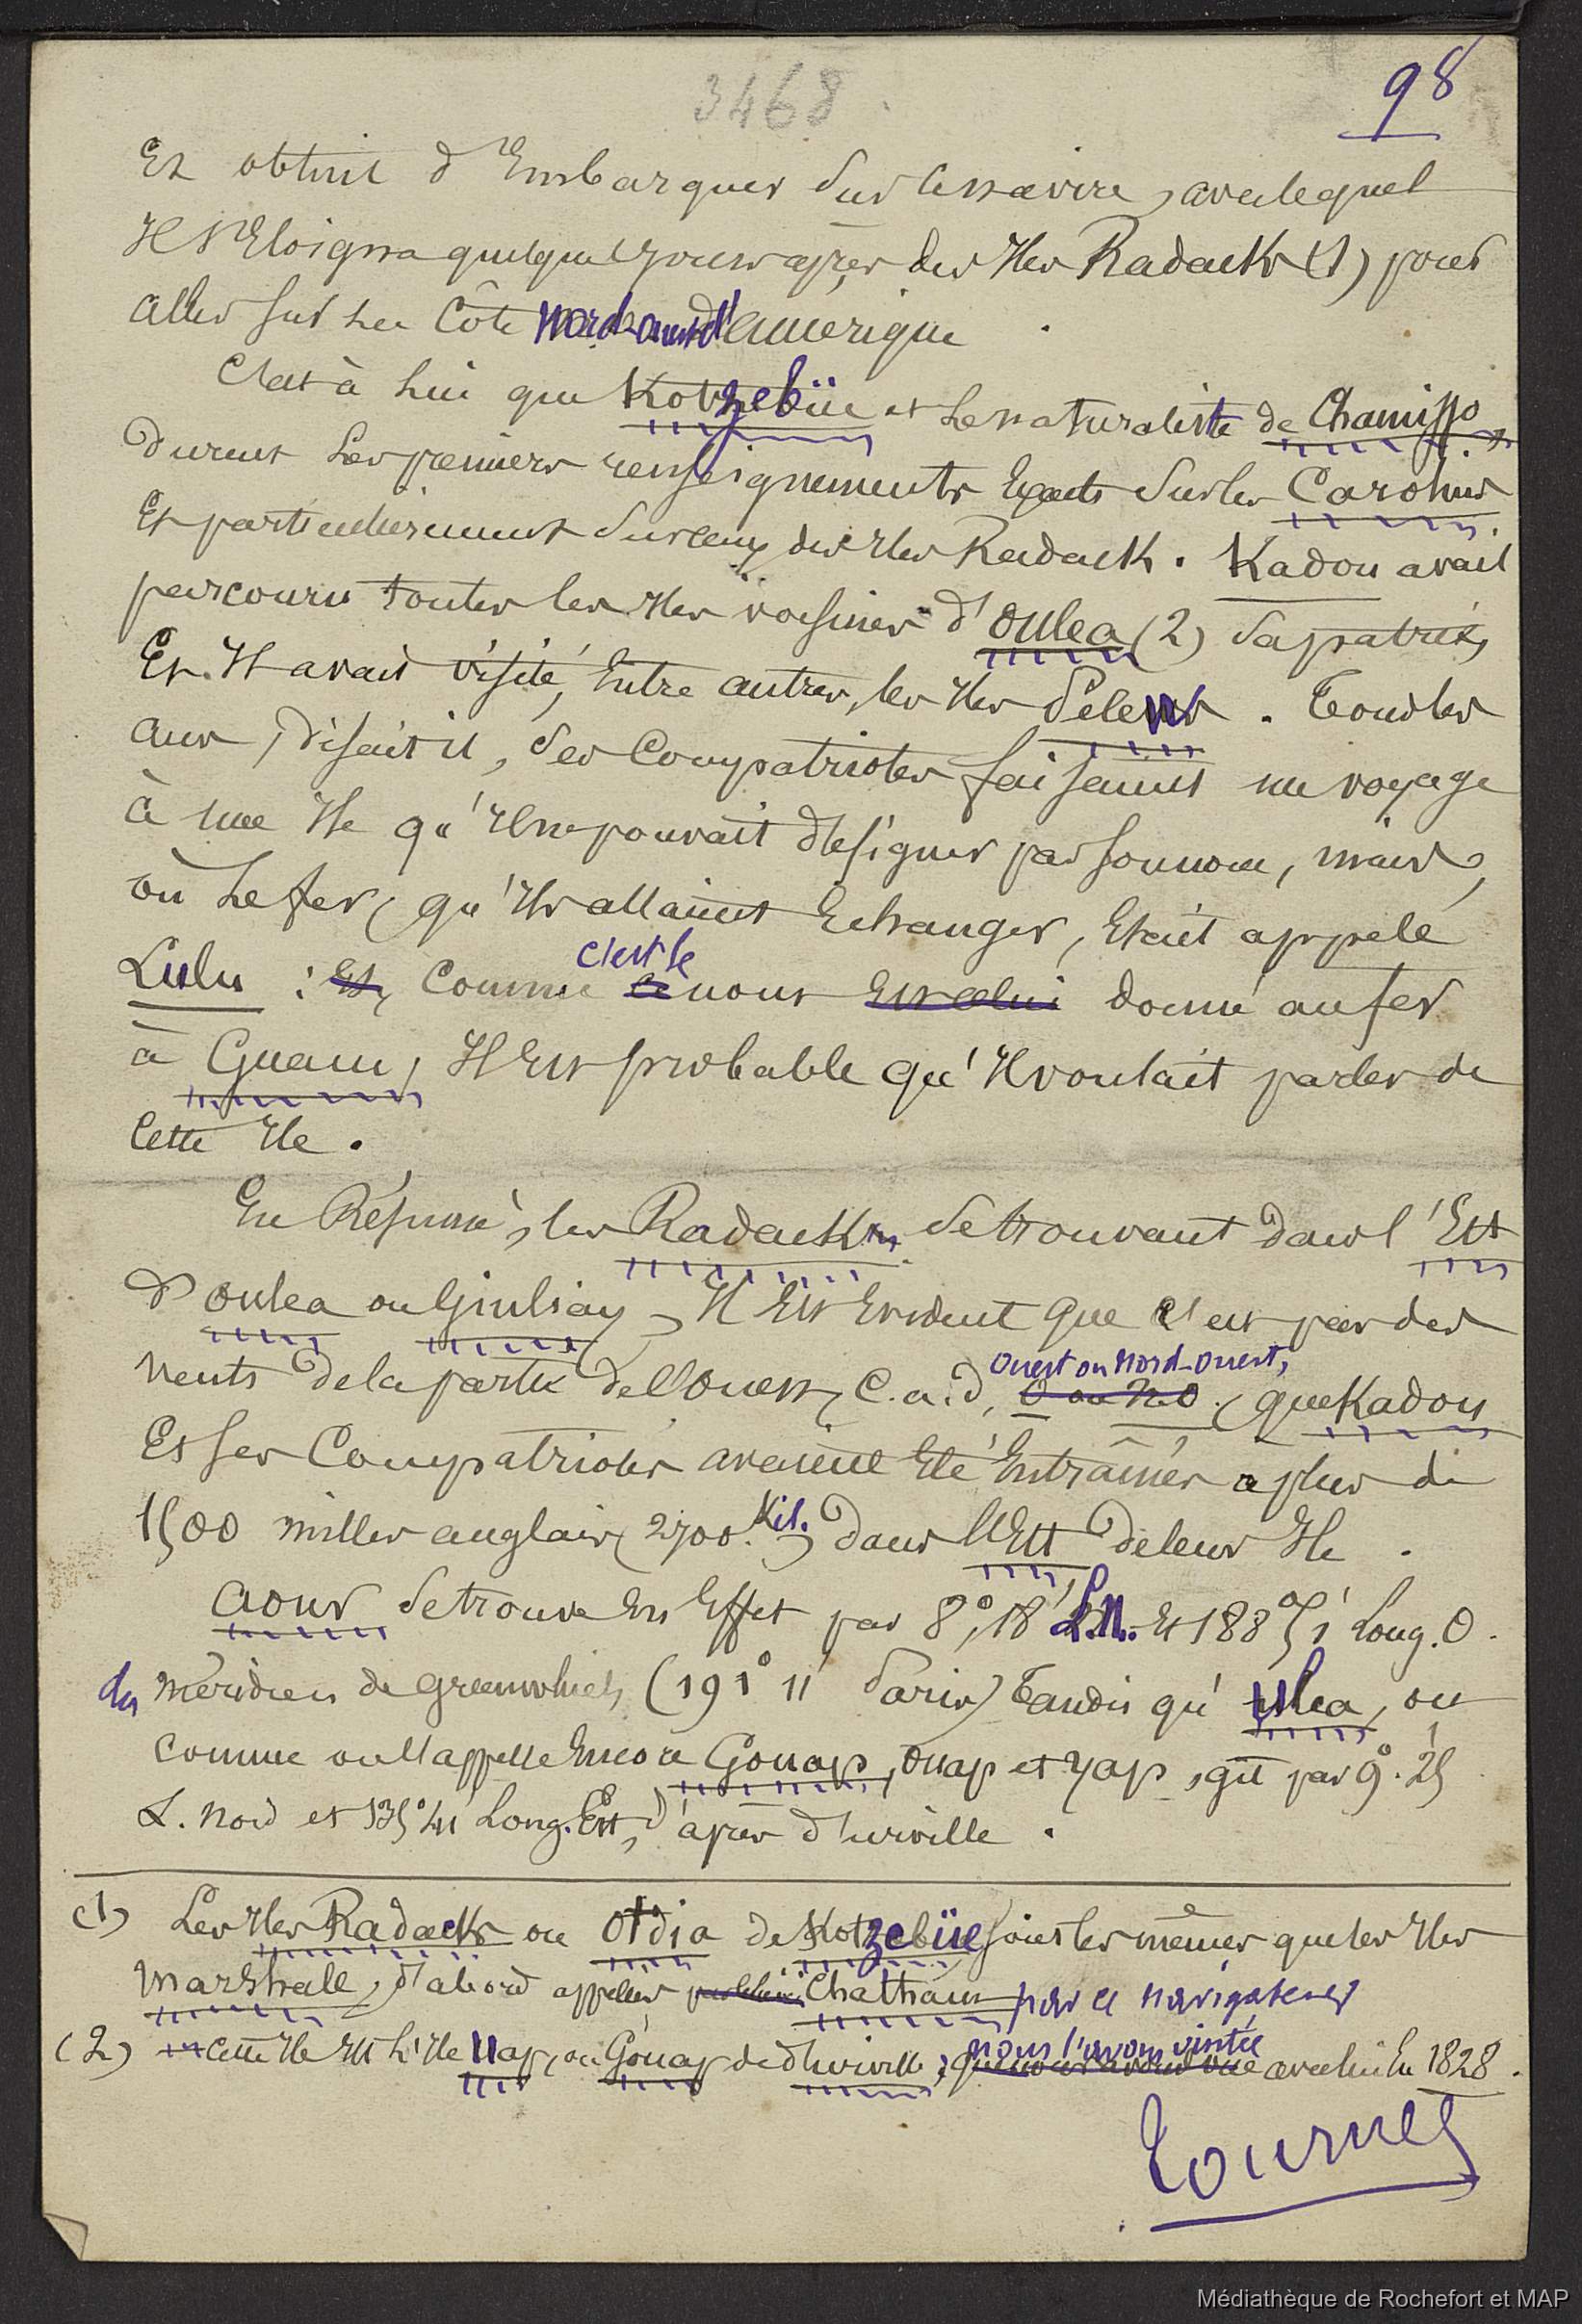 3468
98
Et obtint d'Embarquer sur le navire, avec lequel
Il s'Eloigna quelques jours après des Iles Radacks (1) pour
aller sur la Côte nord-ouest d'amérique
C'est à lui que Kotzebüe et le naturaliste de Chamisso,
durent les premiers renseignements Exacts sur les Carolines
Et particulièrement sur ceux des Iles Radack. Kadou avait
parcouru toutes les Iles voisines d'oulea (2) sa patrie,
Et Il avait visité, Entre autres, les Iles Pelew. Tous les
ans, disait il, ses Compatriotes faisaient un voyage
à une Ile qu'Il ne pouvait désigner par son nom, mais,
où le fer, qu'Ils allaient Echanger, Etait appelé
Lulu : Et, comme c'est le nom donné au fer
à Guam, Il Est probable qu'Il voulait parler de
cette Ile.
En Résumé, les Radacks se trouvant dans l'Est
d'oulea ou Giuliay, Il Est Evident que c'est par des
vents de la partie de l'Ouest, c.a.d, Ouest ou Nord-Ouest, que Kadou
Et ses Compatriotes avaient Eté Entraînés a plus de
1500 milles anglais (2700. Kil.) dans l'Est de leur Ile.
aour se trouve En Effet par 8°, 18' L.N. Et 188° 51' Long. O.
du méridien de greenwhich (191° 11' Paris) Tandis qu'ulea, ou
comme on l'appelle Encore Gouap, ouap et yap, gît par 9°. 25'
L. Nord et 135° 41' Long. Est, d'après d'urville.
(1) Les Iles Radacks ou Otdia de Kotzebüe sont les mêmes que les Iles
Marshall, d'abord appelées Chatham par ce navigateur
(2) cette Ile Est l'Ile Uap, ou Gouap de d'urville ; nous l'avons visitée avec lui En 1828.
Tournes
Médiathèque de Rochefort et MAP